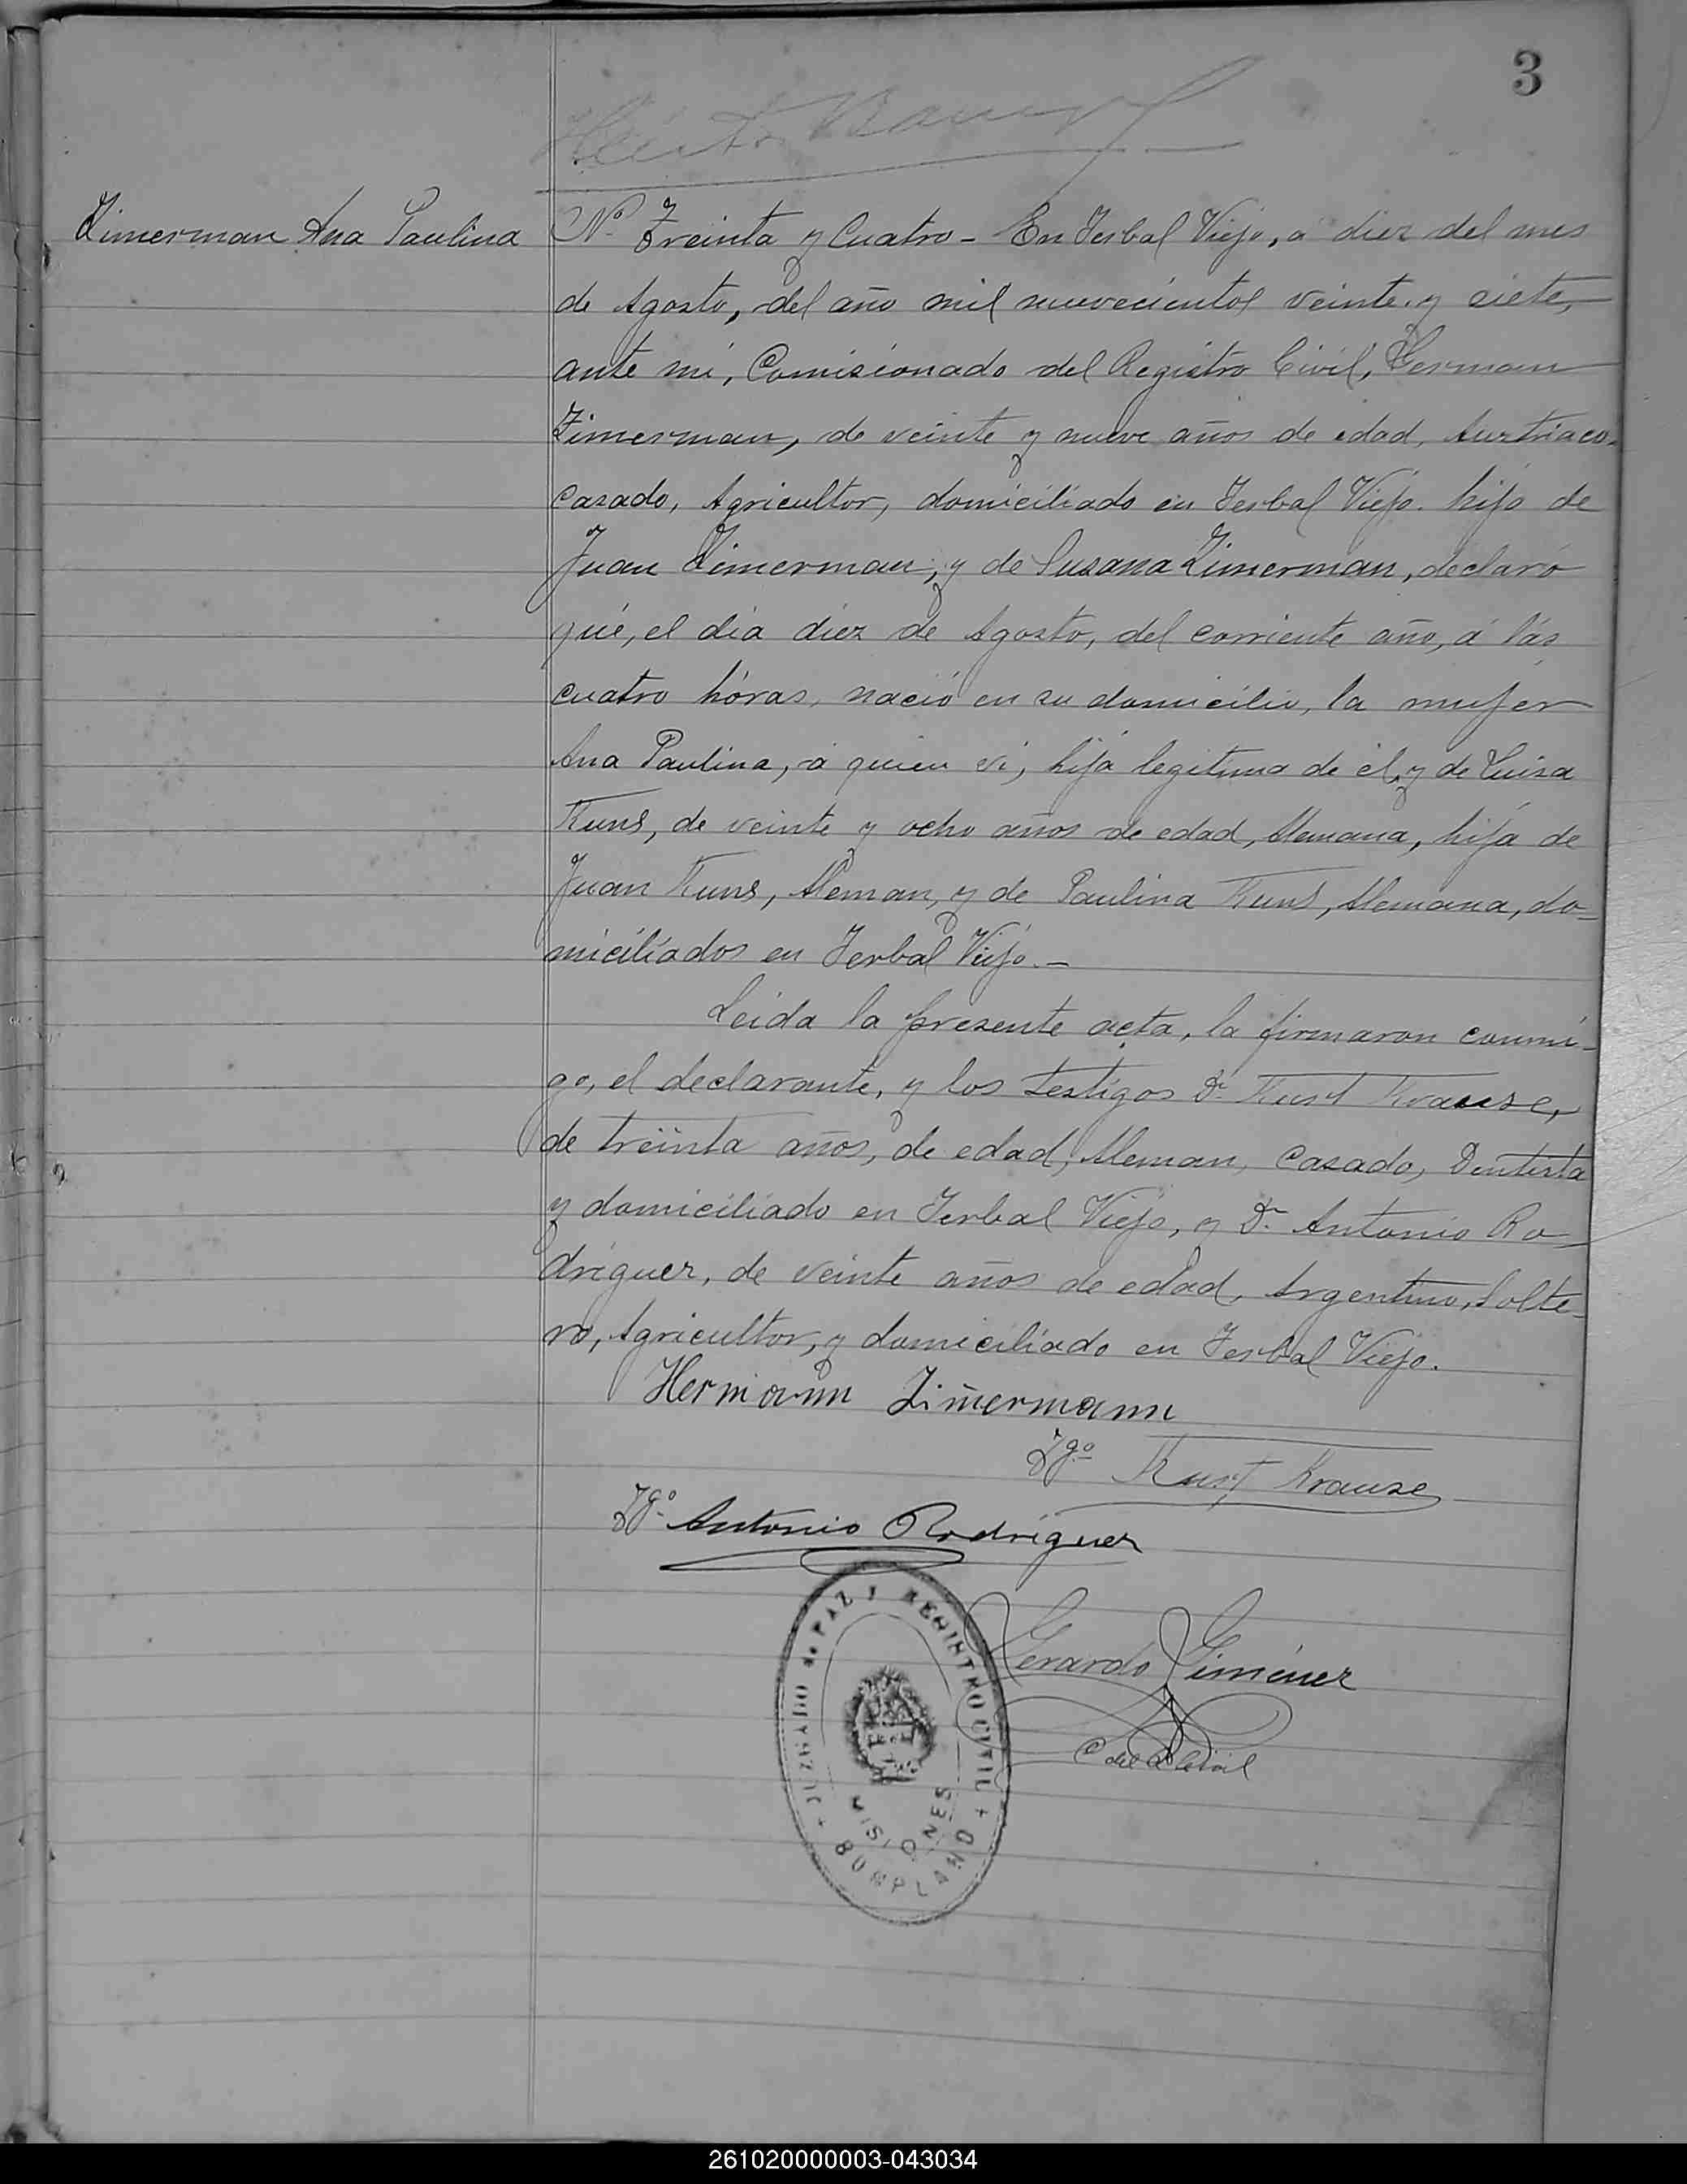 3
Zimerman Ana Paulina
Nº Treinta y Cuatro - En Yerbal Viejo, a diez del mes
de Agosto, del año mil nuevecientos veinte y siete,
ante mi, Comisionado del Registro Civil, German
Zimerman, de veinte y nueve años de edad, Austriaco,
Casado, Agricultor, domiciliado en Yerbal Viejo. hijo de
Juan Zimerman, y de Susana Zimerman, declaró
qué, el día diez de Agosto, del corriente año, á lás
cuatro hóras, nació en su domicilio, la mujer
Ana Paulina, á quien vi, hija legitima de él, y de Luisa
Kuns, de veinte y ocho años de edad, Alemana, hija de
Juan Kuns, Aleman, y de Paulina Kuns, Alemana, do-
miciliados en Yerbal Viejo. -
Leida la presente acta, la firmaron conmi-
go, el declarante, y los testigos Dn Kurt Krause,
de treinta años, de edad, Aleman, Casado, Dentista
y domiciliado en Yerbal Viejo, y Dn Antonio Ro-
driguez, de veinte años de edad, Argentino, Solte-
ro, Agricultor, y domiciliado en Yerbal Viejo.
Hermann Zimermann
Tgo Kurt Krause
Tgo Antonio Rodriguez
Gerardo Giménez
C del R Civil
JUZGADO de PAZ Y REGISTRO CIVIL
MISIONES
BOMPLAND
261020000003-043034